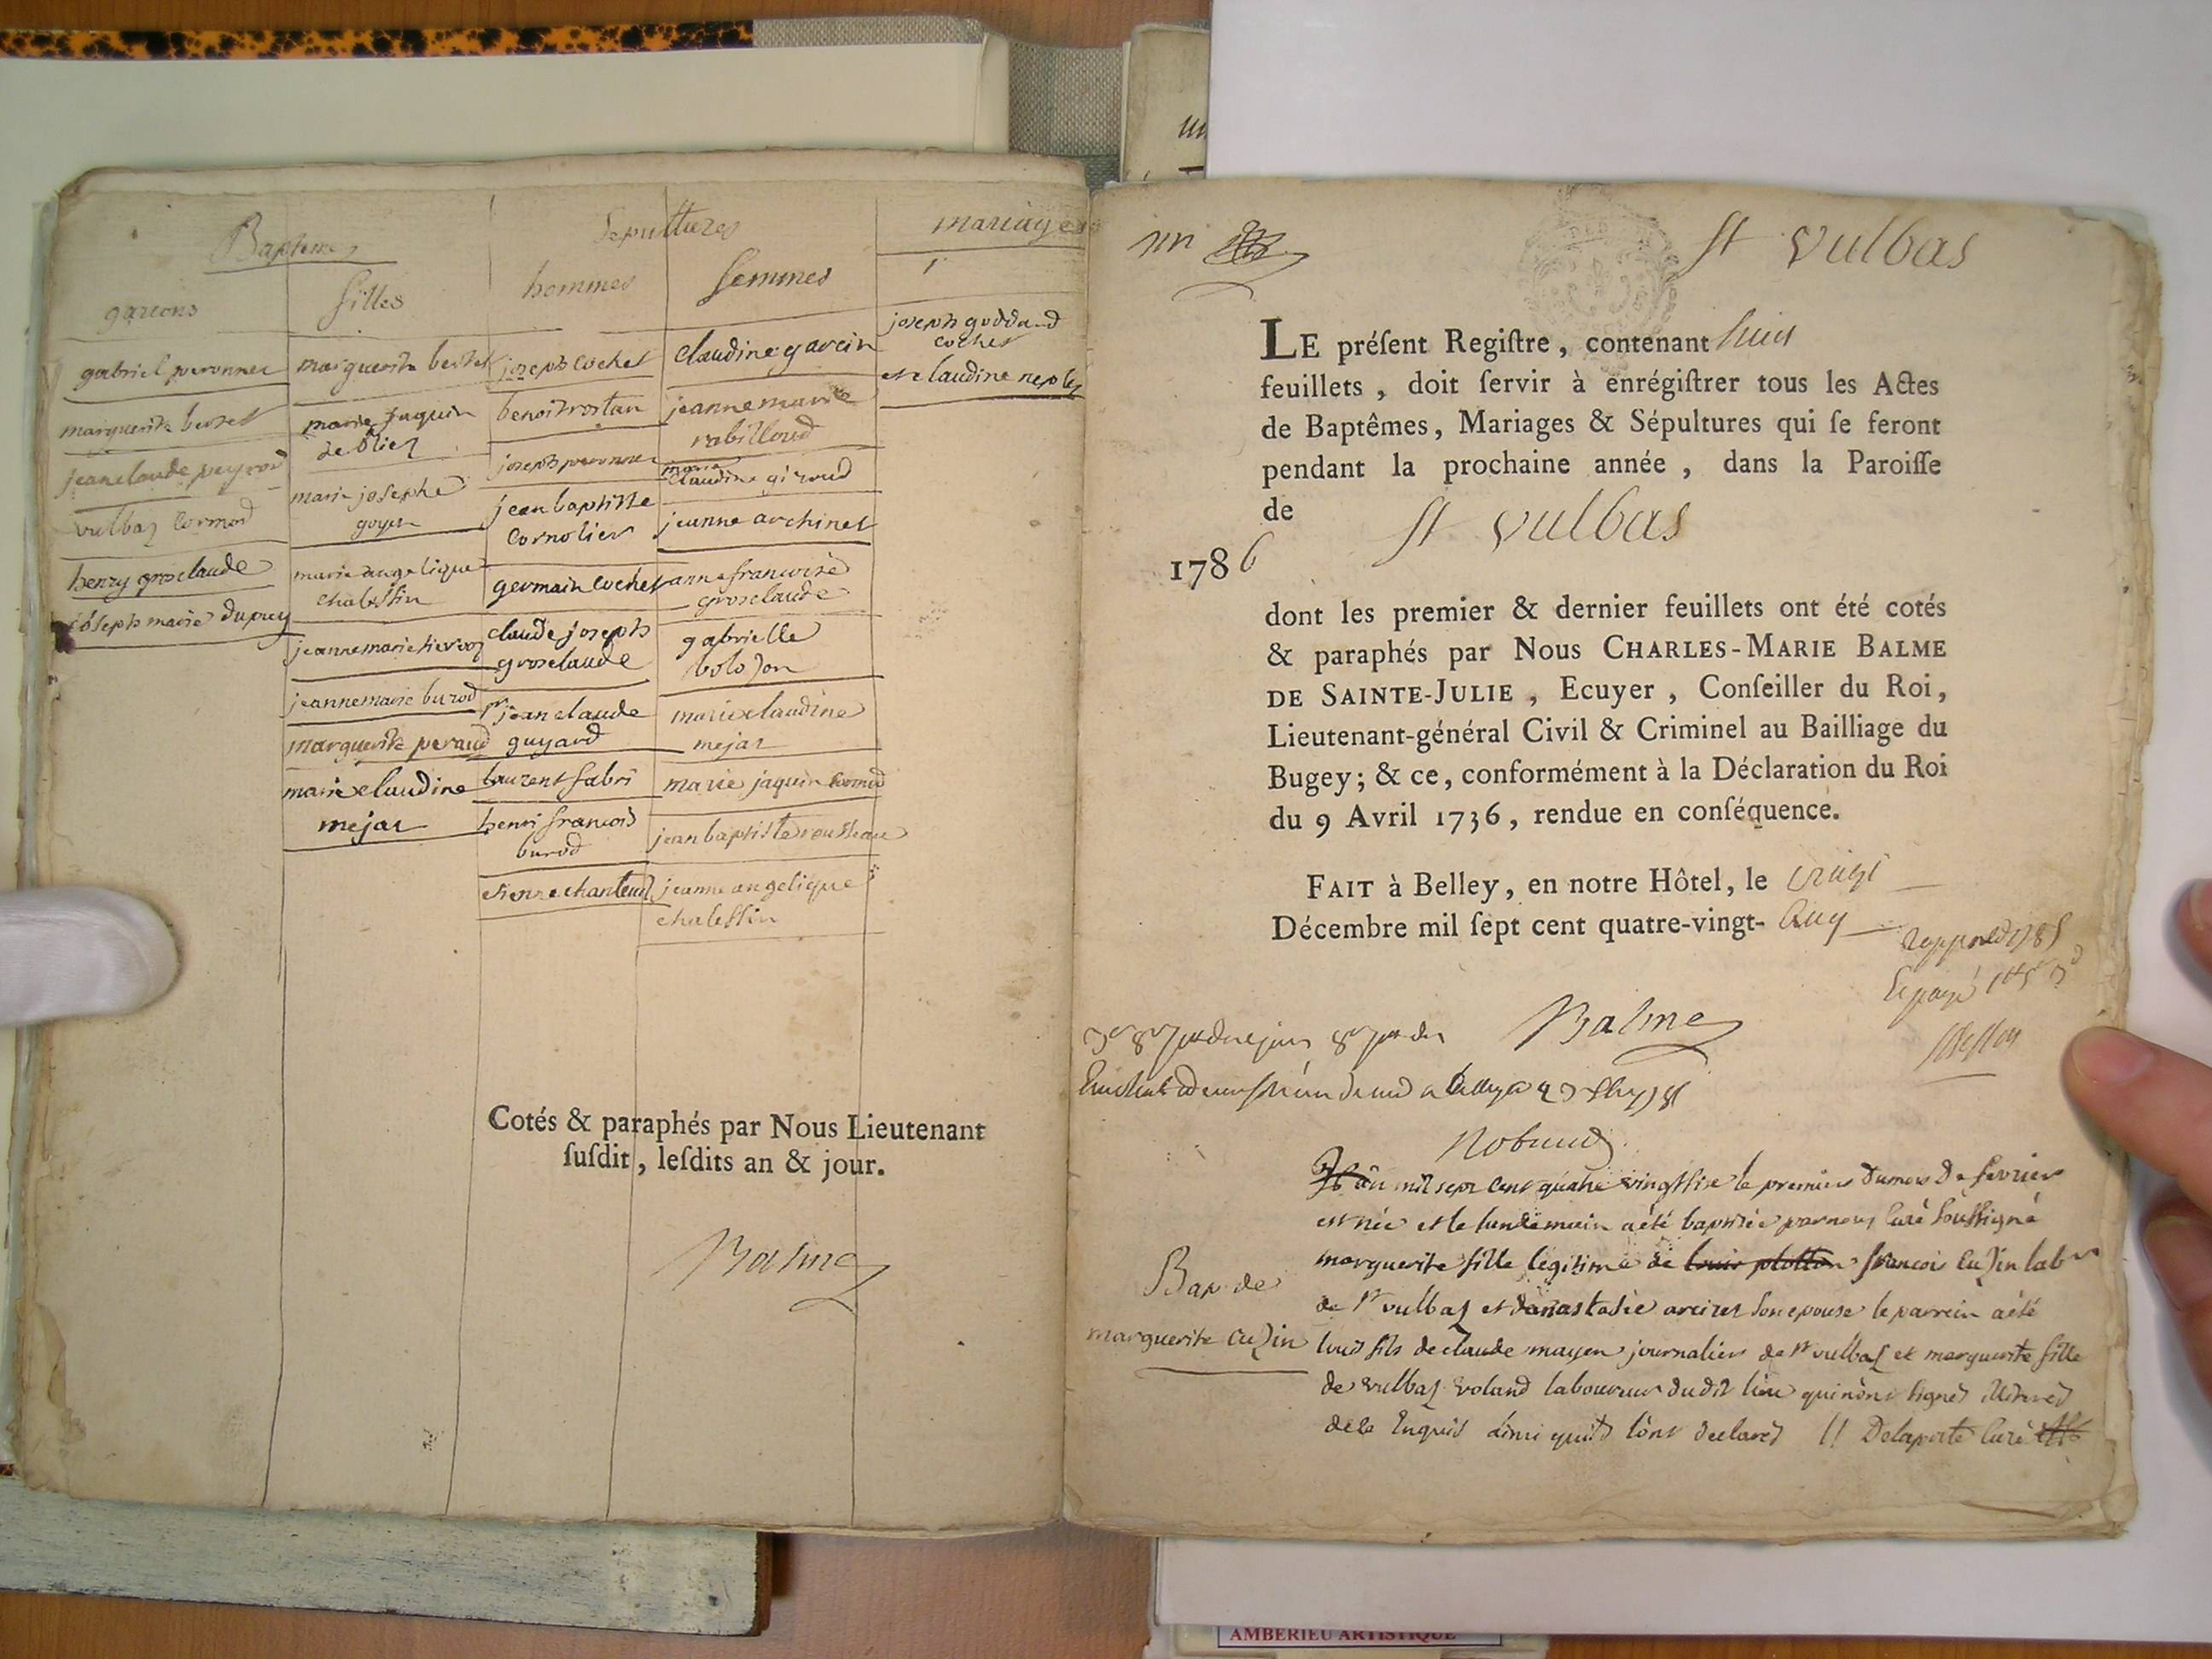 Baptemes
Sepultures
mariages
garcons
filles
hommes
femmes
1
gabriel peronnet
marguerite bertet
jean claude peyrod
vulbas Cormod
henry grosclaude
joseph marie dupuy
marguerite bertet
marie jaquin
de blier
marie josephe
goyet
marie angelique
chalessin
jeanne marie
jeanne marie burod
marguerite peraud
marie claudine
mejat
joseph cochet
benoit rostan
joseph peronnet
jean baptiste
Cornolier
germain cochet
claude joseph
grosclaude
jean claude
guyard
laurent fabri
henri francois
burod
etienne chanteur
claudine garcin
jeanne marie
rabilloud
marie
claudine giroud
jeanne archinet
anne francoise
grosclaude
gabrielle
bolozon
marie claudine
mejat
marie jaquin cormod
jean baptiste rousseau
jeanne angelique
chalessin
joseph goddard
cochet
et claudine neples
Cotés & paraphés par Nous Lieutenant
ſuſdit, leſdits an & jour.
Balme
St vulbas
LE préſent Regiſtre, contenant huit
feuillets, doit ſervir à enrégiſtrer tous les Actes
de Baptêmes, Mariages & Sépultures qui ſe feront
pendant la prochaine année, dans la Paroiſſe
de St vulbas
1786
dont les premier & dernier feuillets ont été cotés
& paraphés par Nous CHARLES-MARIE BALME
DE SAINTE-JULIE, Ecuyer, Conſeiller du Roi,
Lieutenant-général Civil & Criminel au Bailliage du
Bugey; & ce, conformément à la Déclaration du Roi
du 9 Avril 1736, rendue en conſéquence.
FAIT à Belley, en notre Hôtel, le vingt
Décembre mil ſept cent quatre-vingt- Cinq
Balme
L'an mil sept cent quatre vingt six le premier du mois de fevrier
est née et le lendemain a été baptisée par nous Curé soussigné
marguerite fille legitime de louis plotton francois Cuzin lab
de st vulbas et danastasie arcizet son epouse le parrein a été
louis fils de claude mayen journalier de st vulbas et marguerite fille
de vulbas voland laboureur dudit lieu qui n'ont signés
de ce Enquis ainsi quils l'ont declarés Delaporte Curé
Bap. de
marguerite Cuzin
AMBERIEU ARTISTIQUE